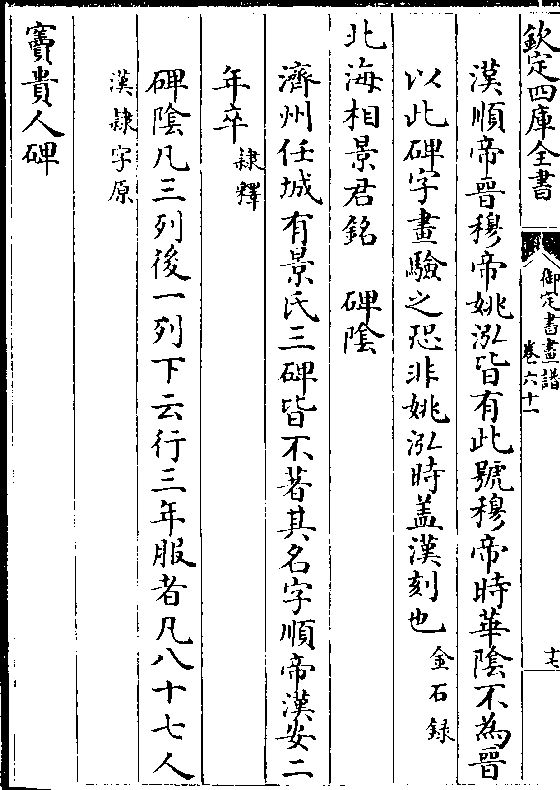 欽定四庫全書
御定書畫譜
卷六十一
十七
漢順帝晉穆帝姚泓皆有此號穆帝時華陰不為晉
以此碑字畫驗之恐非姚泓時蓋漢刻也金石録
北海相景君銘　碑陰
濟州任城有景氏三碑皆不著其名字順帝漢安二
年卒隸釋
碑陰凡三列後一列下云行三年服者凡八十七人
漢隸字原
竇貴人碑